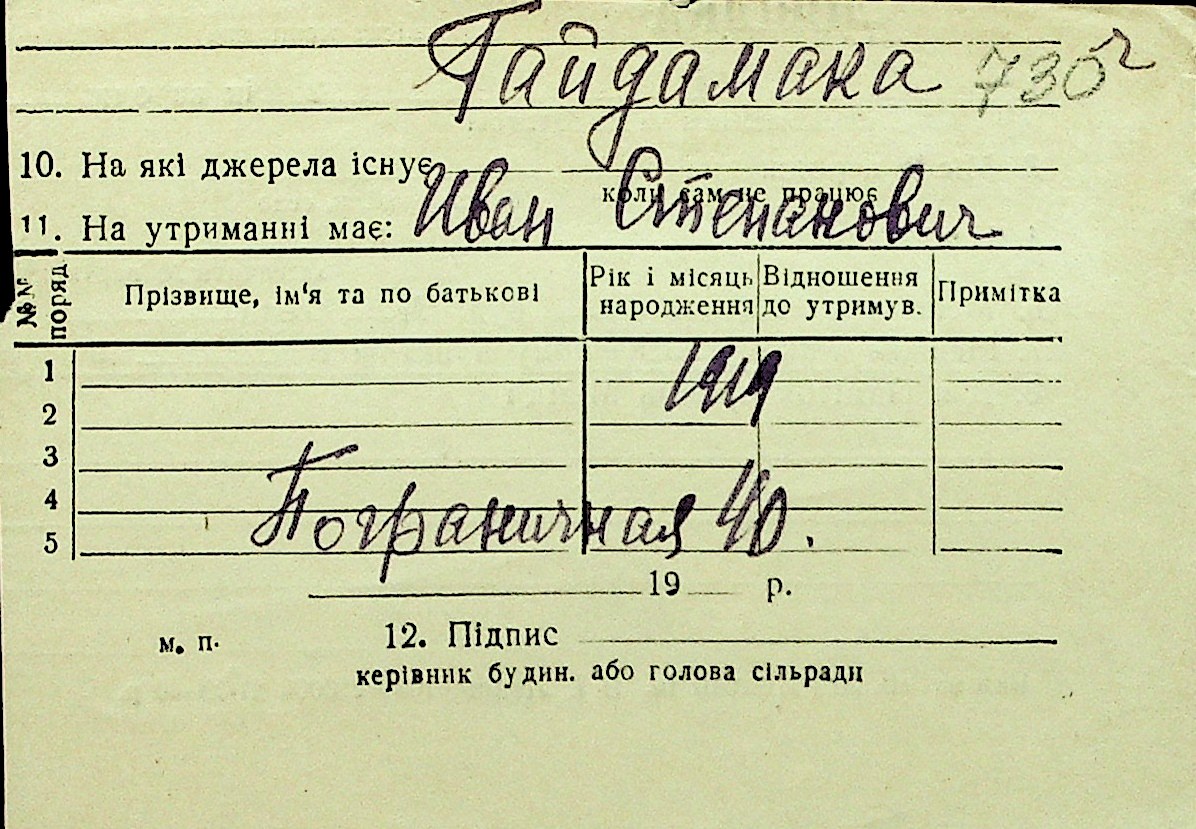 Гайдамака 730 г
10. На які джерела існує
коли сам не працює
Иван Степанович
11. На утриманні має:
№№ поряд.
Прізвище, ім'я та по батькові
Рік і місяць народження
Відношення до утримув.
Примітка
1
1919
2
3
4
Пограничная 40.
5
19 р.
м. п.
12. Підпис
керівник будин. або голова сільради